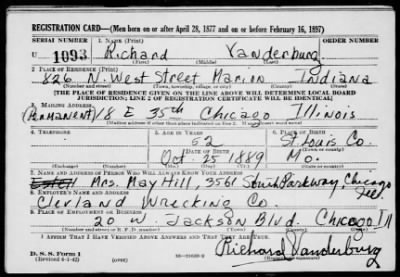 REGISTRATION CARD—(Men born on or after April 28, 1877 and on or before February 16, 1897)
SERIAL NUMBER 1. NAME (Print) ORDER NUMBER
U 1093 Richard Vanderburg
(First) (Middle) (Last)
2. PLACE OF RESIDENCE (Print)
826 N. West Street Marion Indiana
(Number and street) (Town, township, village, or city) (County) (State)
[THE PLACE OF RESIDENCE GIVEN ON THE LINE ABOVE WILL DETERMINE LOCAL BOARD
JURISDICTION; LINE 2 OF REGISTRATION CERTIFICATE WILL BE IDENTICAL]
3. MAILING ADDRESS
(Permanent) 18 E 35th Chicago Illinois
4. TELEPHONE 5. AGE IN YEARS 6. PLACE OF BIRTH
52 St. Louis Co.
DATE OF BIRTH
Oct. 25 1889 Mo.
7. NAME AND ADDRESS OF PERSON WHO WILL ALWAYS KNOW YOUR ADDRESS
Mrs. May Hill, 3561 South Parkway, Chicago
Ill
8. EMPLOYER'S NAME AND ADDRESS
Clevland Wrecking Co.
9. PLACE OF EMPLOYMENT OR BUSINESS
20 W. Jackson Blvd. Chicago Ill
(Number and street or R. F. D. number) (Town) (County) (State)
I AFFIRM THAT I HAVE VERIFIED ABOVE ANSWERS AND THAT THEY ARE TRUE.
D. S. S. Form 1
(Revised 4-1-42) Richard Vanderburg